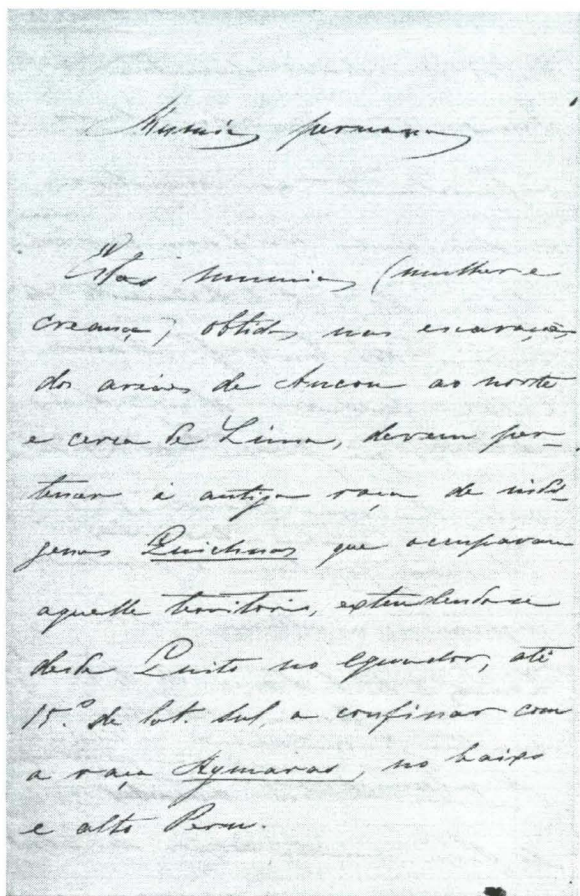 Mumias peruanas
Estas mumias (mulher e
creança) obtidas nas escavações
dos areiaes de Ancon ao norte
e cerca de Lima, devem per-
tencer à antiga raça de indi-
genas Quichuas que occupavam
aquelle territorio, extendendo-se
desde Quito no Equador, até
15.º de lat. sul, a confinar com
a raça Aymaras, no baixo
e alto Peru.